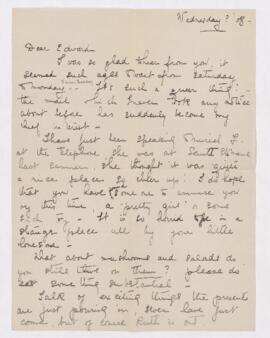 Wednesday?
Dear Edward
I was so glad to hear from you, it
seemed such ages to wait from Saturday
to Monday. It's such a queer thing:-
the mail which I never took any notice
about before has suddenly become my
chief interest -
I have just been speaking to Muriel
at the telephone she was at South
last summer. She thought it was quite
a nice place, so cheer up! I do hope
that you have some one to amuse you
by this time, a "pretty girl" or some
such toy - It is so horrid to be in a
strange place all by your little
lonesome -
What about mushrooms and salads do
you still live on them? please do
eat something substantial -
Talk of exciting things the presents
are just pouring in, seven have just
come but of course Ruth is out